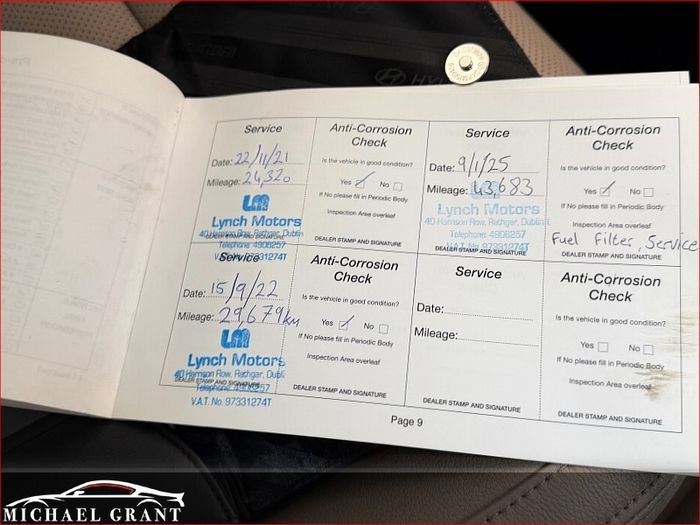 Service
Date: 22/11/21
Mileage: 24,320
LM
Lynch Motors
40 Harrison Row, Rathgar, Dublin
DEALER STAMP AND SIGNATURE
Telephone: 4908257
V.A.T. No. 97331274T
Anti-Corrosion
Check
Is the vehicle in good condition?
Yes ✓ No
If No please fill in Periodic Body
Inspection Area overleaf
DEALER STAMP AND SIGNATURE
Service
Date: 9/1/25
Mileage: 43,683
LM
Lynch Motors
40 Harrison Row, Rathgar, Dublin
Telephone: 4908257
DEALER STAMP AND SIGNATURE
V.A.T. No. 97331274T
Anti-Corrosion
Check
Is the vehicle in good condition?
Yes ✓ No
If No please fill in Periodic Body
Inspection Area overleaf
Fuel Filter, Service
DEALER STAMP AND SIGNATURE
Service
Date: 15/9/22
Mileage: 29,679km
LM
Lynch Motors
40 Harrison Row, Rathgar, Dubli
DEALER STAMP AND SIGNATURE
Telephone: 4908257
V.A.T. No. 97331274T
Anti-Corrosion
Check
Is the vehicle in good condition?
Yes ✓ No
If No please fill in Periodic Body
Inspection Area overleaf
DEALER STAMP AND SIGNATURE
Service
Date:
Mileage:
DEALER STAMP AND SIGNATURE
Anti-Corrosion
Check
Is the vehicle in good condition?
Yes No
If No please fill in Periodic Body
Inspection Area overleaf
DEALER STAMP AND SIGNATURE
Page 9
MICHAEL GRANT